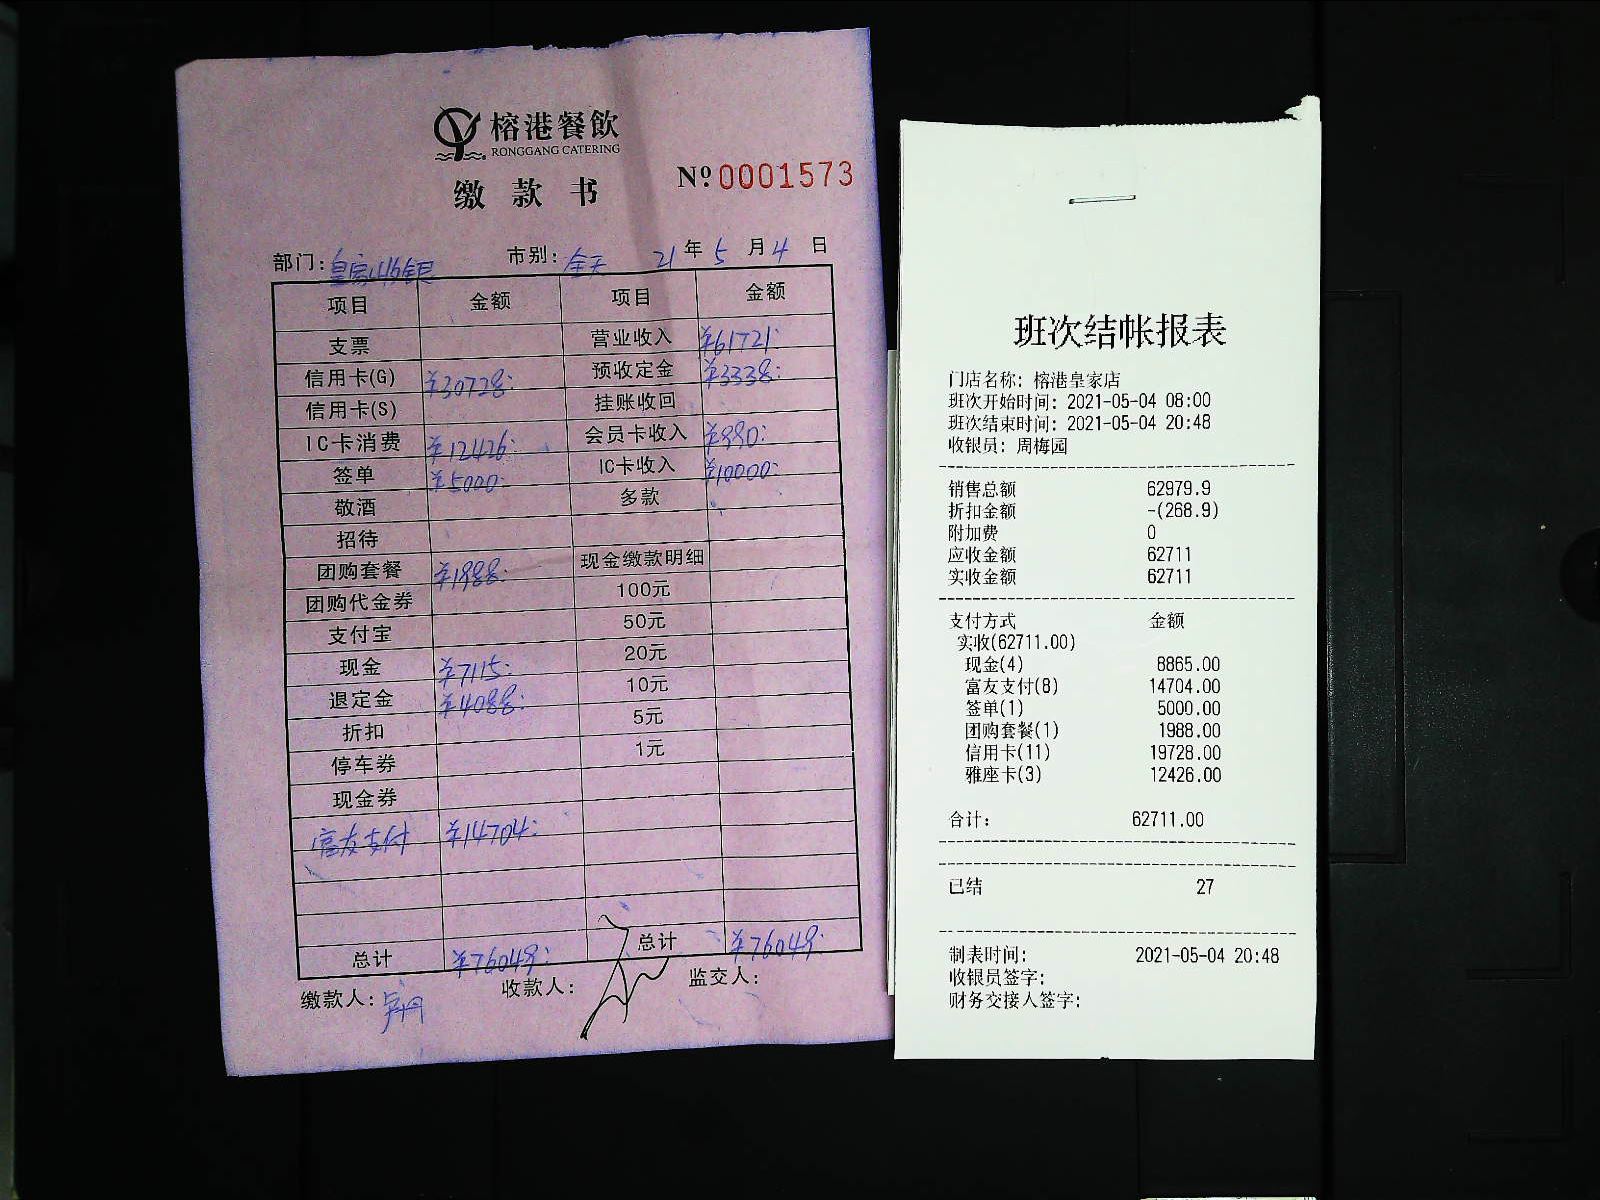 榕港餐飲
RONGGANG CATERING
缴款书
Nº 0001573
部门: 皇家收银 市别: 全天 21 年 5 月 4 日
项目 金额 项目 金额
支票 营业收入 ¥61721:
信用卡(G) ¥30728: 预收定金 ¥3338:
信用卡(S) 挂账收回
IC卡消费 ¥12426: 会员卡收入 ¥990:
签单 ¥5000: IC卡收入 ¥10000:
敬酒 多款
招待
团购套餐 ¥1988: 现金缴款明细
团购代金券 100元
支付宝 50元
现金 ¥7115: 20元
退定金 ¥4088: 10元
折扣 5元
停车券 1元
现金券
富友支付 ¥14704:
总计 ¥76049: 总计 ¥76049:
缴款人: 收款人: 监交人:
班次结帐报表
门店名称: 榕港皇家店
班次开始时间: 2021-05-04 08:00
班次结束时间: 2021-05-04 20:48
收银员: 周梅园
销售总额 62979.9
折扣金额 -(268.9)
附加费 0
应收金额 62711
实收金额 62711
支付方式 金额
实收(62711.00)
现金(4) 8865.00
富友支付(8) 14704.00
签单(1) 5000.00
团购套餐(1) 1988.00
信用卡(11) 19728.00
雅座卡(3) 12426.00
合计: 62711.00
已结 27
制表时间: 2021-05-04 20:48
收银员签字:
财务交接人签字: